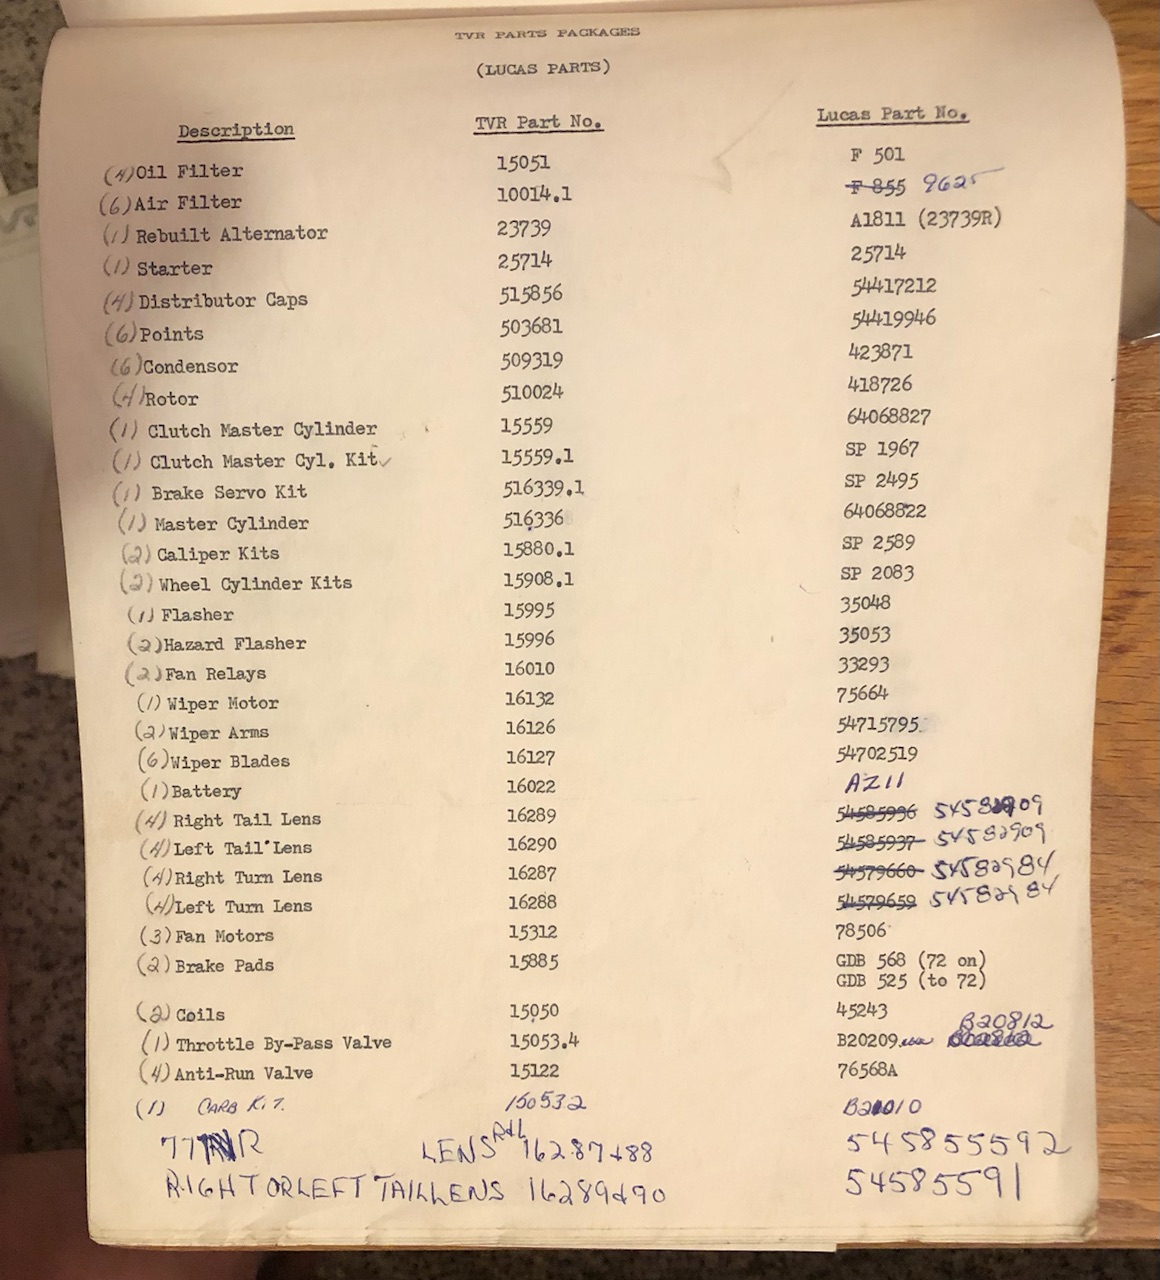 TVR PARTS PACKAGES
(LUCAS PARTS)
Description TVR Part No. Lucas Part No.
(4) Oil Filter 15051 F 501
(6) Air Filter 10014.1 F 855 9625
(1) Rebuilt Alternator 23739 A1811 (23739R)
(1) Starter 25714 25714
(4) Distributor Caps 515856 54417212
(6) Points 503681 54419946
(6) Condensor 509319 423871
(4) Rotor 510024 418726
(1) Clutch Master Cylinder 15559 64068827
(1) Clutch Master Cyl. Kit 15559.1 SP 1967
(1) Brake Servo Kit 516339.1 SP 2495
(1) Master Cylinder 516336 64068822
(2) Caliper Kits 15880.1 SP 2589
(2) Wheel Cylinder Kits 15908.1 SP 2083
(1) Flasher 15995 35048
(2) Hazard Flasher 15996 35053
(2) Fan Relays 16010 33293
(1) Wiper Motor 16132 75664
(2) Wiper Arms 16126 54715795
(6) Wiper Blades 16127 54702519
(1) Battery 16022 AZ11
(4) Right Tail Lens 16289 54585936 54582909
(4) Left Tail Lens 16290 54585937 54582909
(4) Right Turn Lens 16287 54579660 54582984
(4) Left Turn Lens 16288 54579659 54582984
(3) Fan Motors 15312 78506
(2) Brake Pads 15885 GDB 568 (72 on)
GDB 525 (to 72)
(2) Coils 15050 45243
(1) Throttle By-Pass Valve 15053.4 B20209 use B20812
(4) Anti-Run Valve 15122 76568A
(1) CARB KIT. 150532 B21010
LENS R+L 16287+88 545855592
RIGHT OR LEFT TAIL LENS 16289+90 54585591